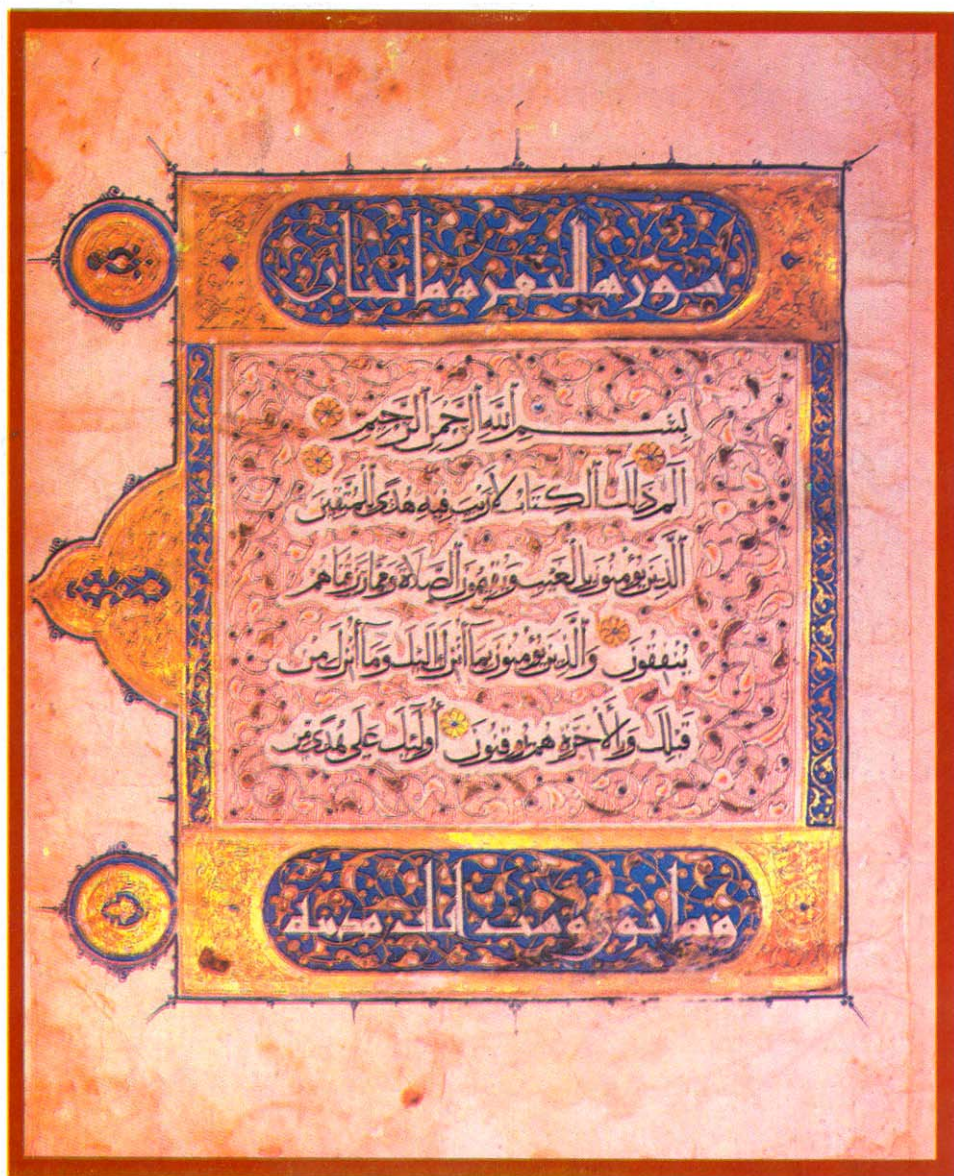 سورة البقرة مائتان
بِسْمِ ٱللَّهِ ٱلرَّحْمَٰنِ ٱلرَّحِيمِ
الٓمٓ ذَٰلِكَ ٱلْكِتَابُ لَا رَيْبَ فِيهِ هُدًى لِّلْمُتَّقِينَ
ٱلَّذِينَ يُؤْمِنُونَ بِٱلْغَيْبِ وَيُقِيمُونَ ٱلصَّلَاةَ وَمِمَّا رَزَقْنَاهُمْ
يُنْفِقُونَ وَٱلَّذِينَ يُؤْمِنُونَ بِمَا أُنْزِلَ إِلَيْكَ وَمَا أُنْزِلَ مِنْ
قَبْلِكَ وَبِٱلْآخِرَةِ هُمْ يُوقِنُونَ أُولَٰئِكَ عَلَىٰ هُدًى مِنْ
وثمانون وست آيات مدنية